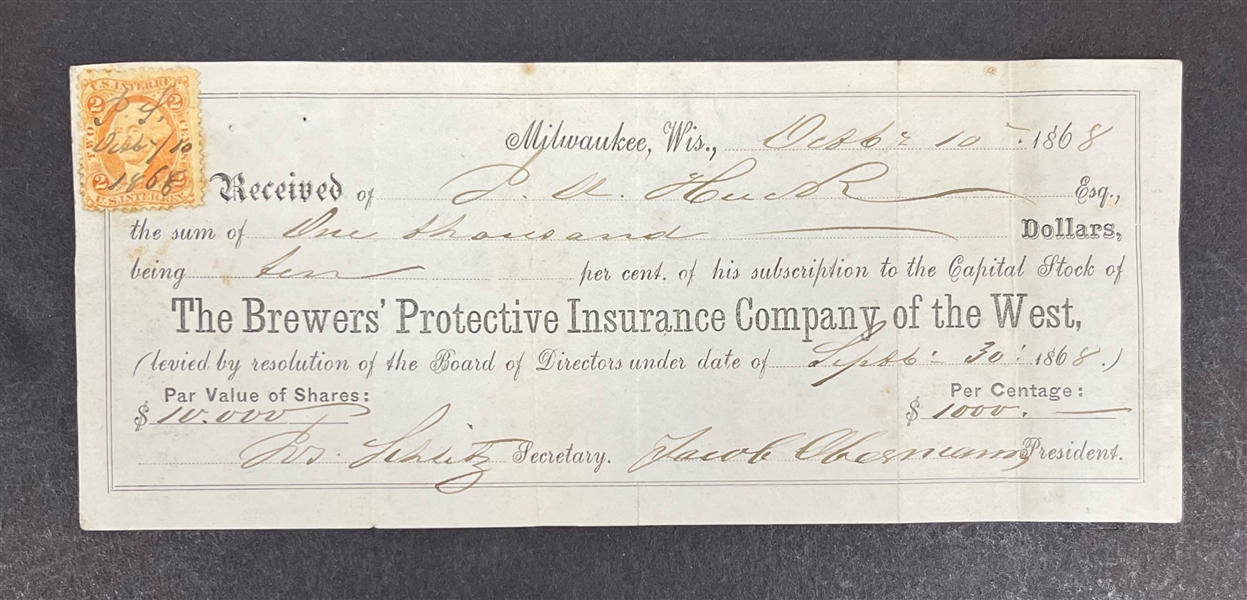 U.S. INTER. REV.
2 2
TWO CENTS
J. S.
Octb 10
1868
2 2
U.S. INTER. REV.
Milwaukee, Wis., Octbr 10 1868
Received of J. A. Huck Esq.,
the sum of One thousand Dollars,
being ten per cent. of his subscription to the Capital Stock of
The Brewers' Protective Insurance Company of the West,
(levied by resolution of the Board of Directors under date of Septb. 30. 1868.)
Par Value of Shares: Per Centage:
$ 10.000 $ 1000.
Jos. Schlitz Secretary. Jacob Obermann President.